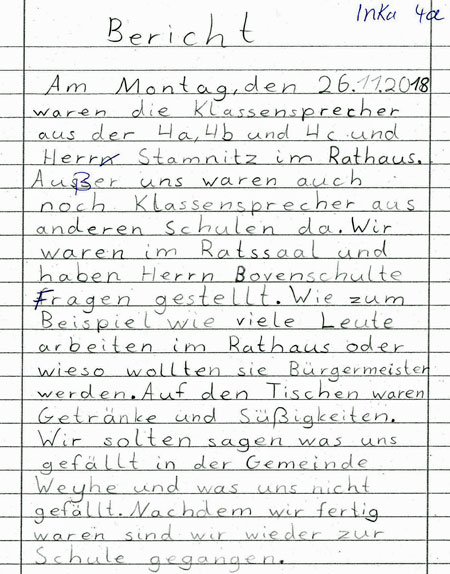 Inka 4a
Bericht
Am Montag, den 26.11.2018
waren die Klassensprecher
aus der 4a, 4b und 4c und
Herr Stamnitz im Rathaus.
Außer uns waren auch
noch Klassensprecher aus
anderen Schulen da. Wir
waren im Ratssaal und
haben Herrn Bovenschulte
Fragen gestellt. Wie zum
Beispiel wie viele Leute
arbeiten im Rathaus oder
wieso wollten sie Bürgermeister
werden. Auf den Tischen waren
Getränke und Süßigkeiten.
Wir solten sagen was uns
gefällt in der Gemeinde
Weyhe und was uns nicht
gefällt. Nachdem wir fertig
waren sind wir wieder zur
Schule gegangen.